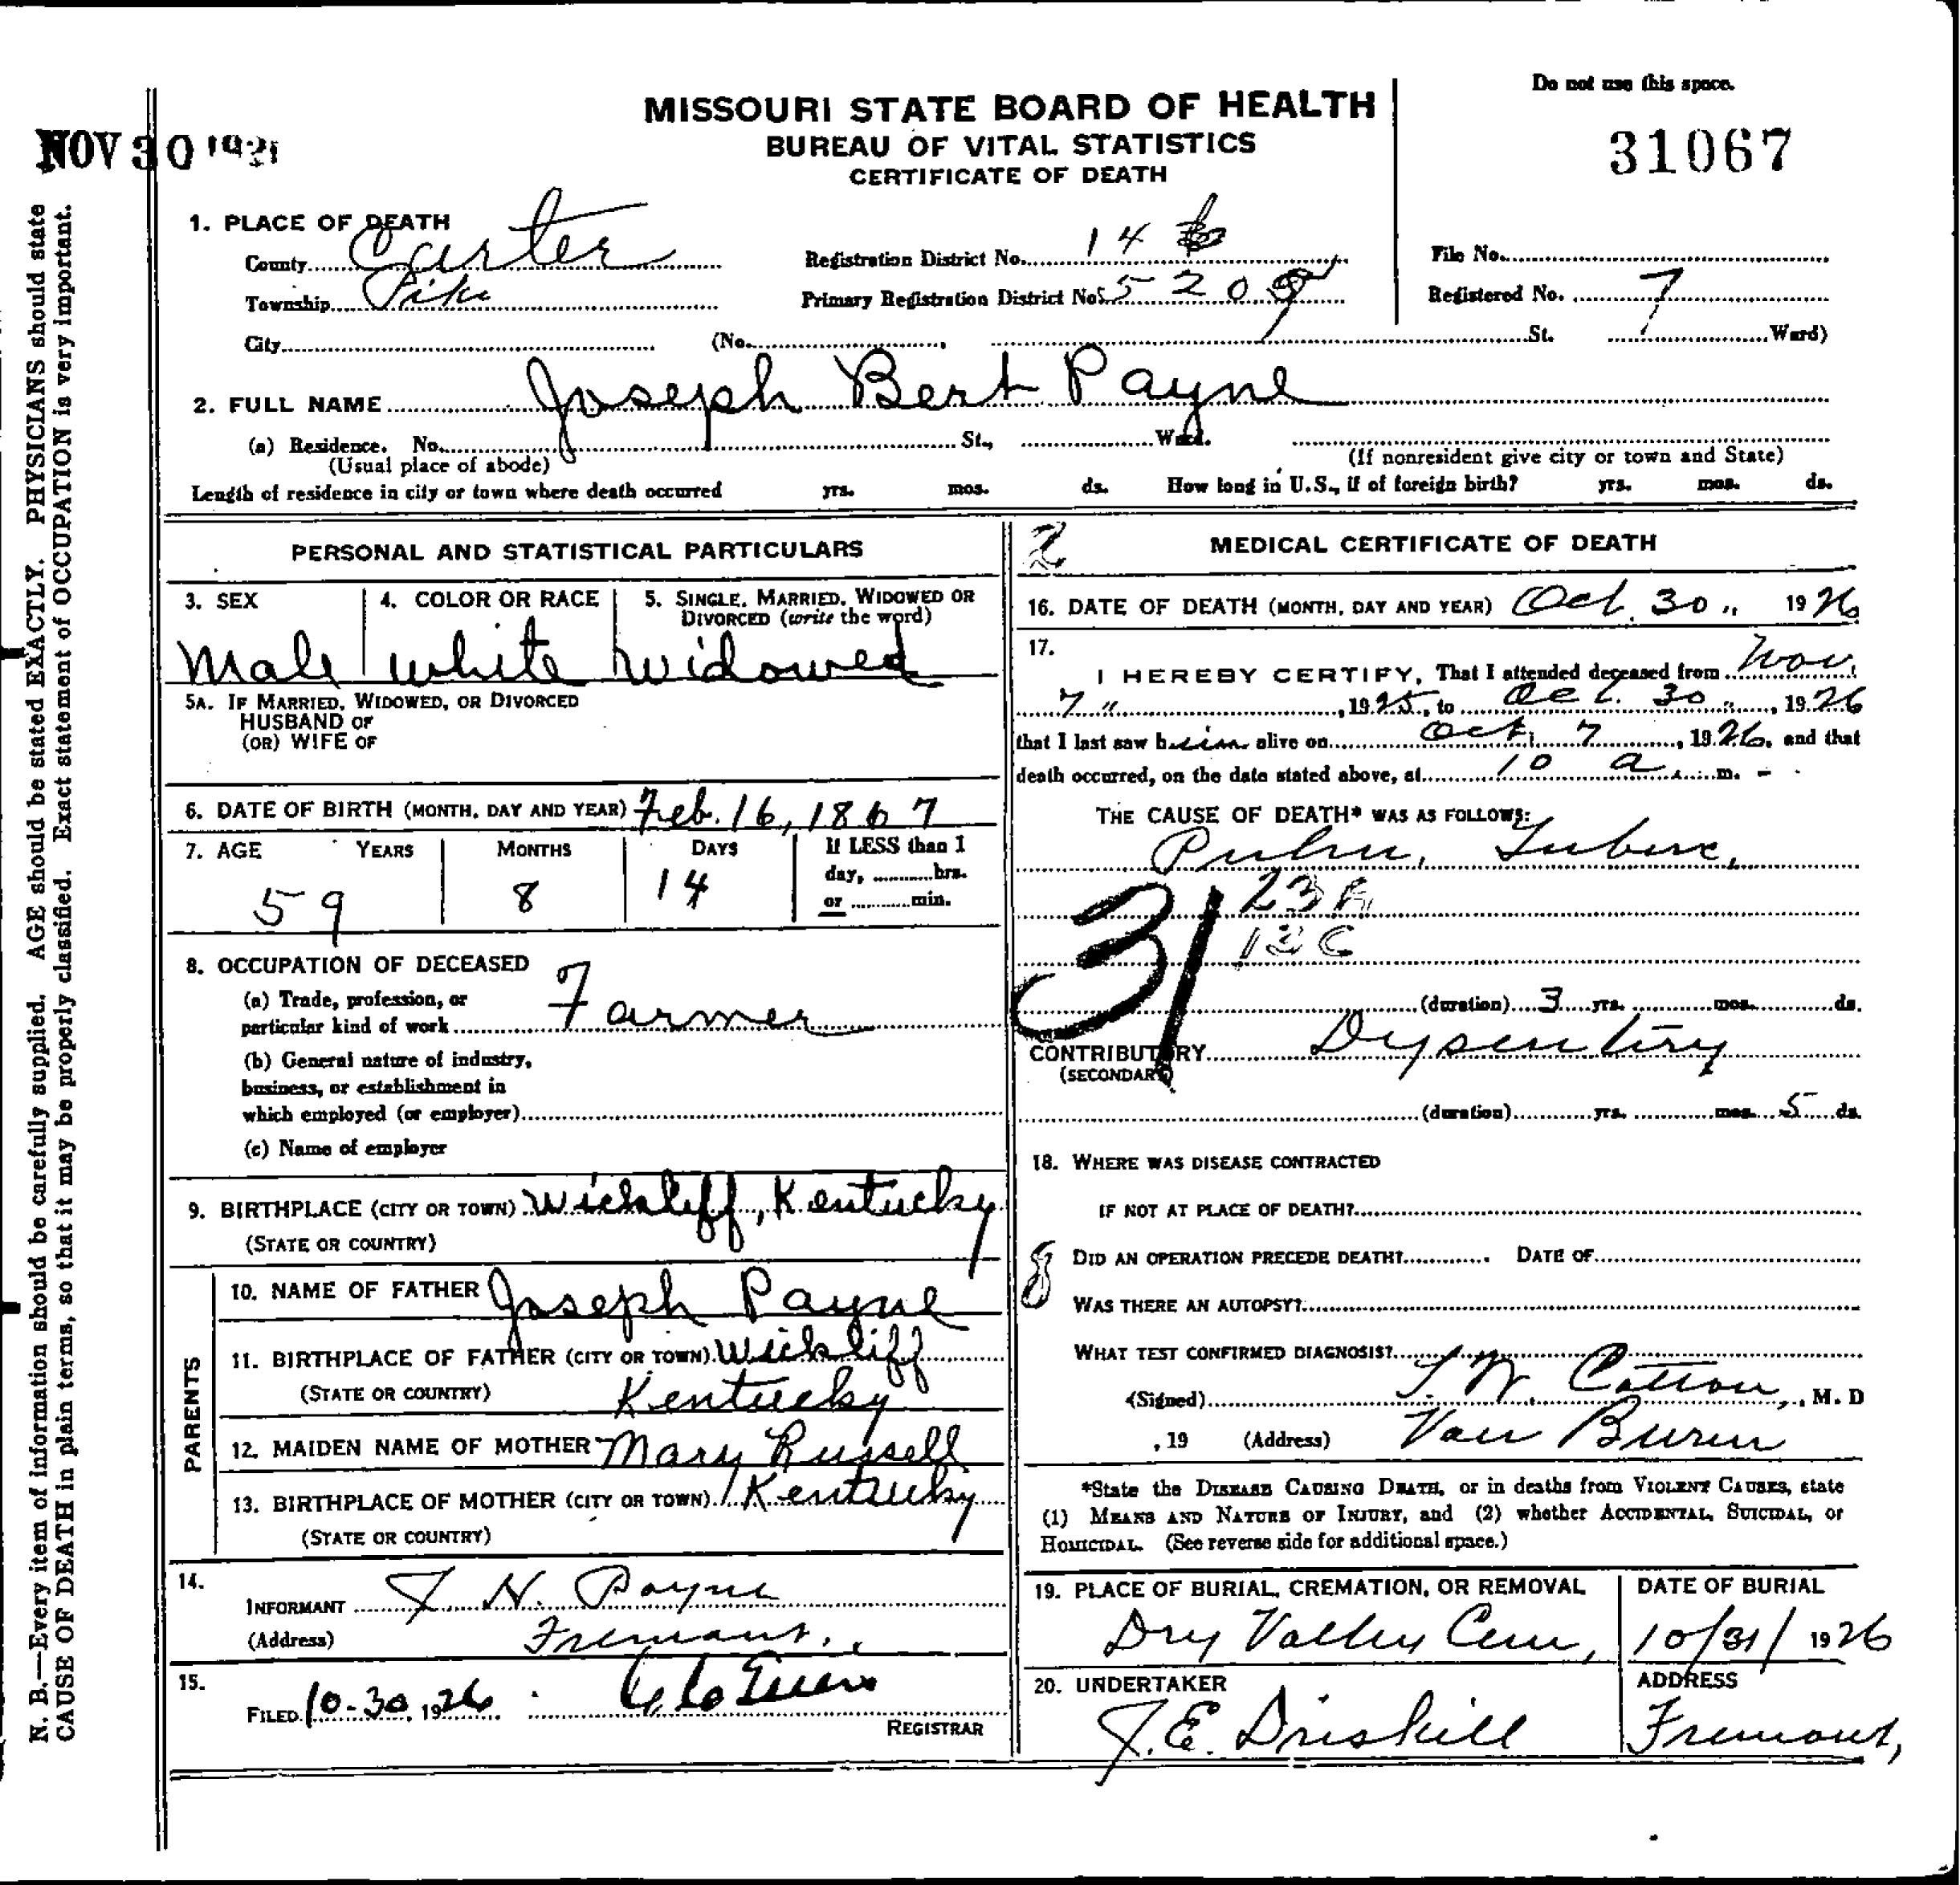 NOV 30
MISSOURI STATE BOARD OF HEALTH
BUREAU OF VITAL STATISTICS
CERTIFICATE OF DEATH
Do not use this space.
31067
1. PLACE OF DEATH
County Carter
Township Pike
City (No. St. Ward)
Registration District No. 14
Primary Registration District No. 5209
File No.
Registered No. 7
2. FULL NAME Joseph Bert Payne
(a) Residence. No. St., Ward.
(Usual place of abode) (If nonresident give city or town and State)
Length of residence in city or town where death occurred yrs. mos. ds. How long in U.S., if of foreign birth? yrs. mos. ds.
PERSONAL AND STATISTICAL PARTICULARS
3. SEX 4. COLOR OR RACE 5. SINGLE, MARRIED, WIDOWED OR
DIVORCED (write the word)
Male white widowed
5A. IF MARRIED, WIDOWED, OR DIVORCED
HUSBAND OF
(OR) WIFE OF
6. DATE OF BIRTH (MONTH, DAY AND YEAR) Feb. 16, 1867
7. AGE YEARS MONTHS DAYS If LESS than 1
day, hrs.
or min.
59 8 14
8. OCCUPATION OF DECEASED
(a) Trade, profession, or
particular kind of work Farmer
(b) General nature of industry,
business, or establishment in
which employed (or employer)
(c) Name of employer
9. BIRTHPLACE (CITY OR TOWN) Wickliff, Kentucky
(STATE OR COUNTRY)
PARENTS
10. NAME OF FATHER Joseph Payne
11. BIRTHPLACE OF FATHER (CITY OR TOWN) Wickliff
(STATE OR COUNTRY) Kentucky
12. MAIDEN NAME OF MOTHER Mary Russell
13. BIRTHPLACE OF MOTHER (CITY OR TOWN) Kentucky
(STATE OR COUNTRY)
14.
INFORMANT J. N. Payne
(Address) Fremont,
15.
FILED 10-30, 1926
REGISTRAR
2
MEDICAL CERTIFICATE OF DEATH
16. DATE OF DEATH (MONTH, DAY AND YEAR) Oct. 30 " 1926
17.
I HEREBY CERTIFY, That I attended deceased from Nov.
7 " , 1925, to Oct. 30 , 1926
that I last saw him alive on Oct. 7 , 1926, and that
death occurred, on the date stated above, at 10 a. m.
THE CAUSE OF DEATH* WAS AS FOLLOWS:
Pulm. Tuberc,
31
(duration) 3 yrs. mos. ds.
CONTRIBUTORY Dysentery
(SECONDARY)
(duration) yrs. mos. 5 ds.
18. WHERE WAS DISEASE CONTRACTED
IF NOT AT PLACE OF DEATH?
8
DID AN OPERATION PRECEDE DEATH? DATE OF
WAS THERE AN AUTOPSY?
WHAT TEST CONFIRMED DIAGNOSIS?
(Signed) T. W. Cotton, M. D
, 19 (Address) Van Buren
*State the DISEASE CAUSING DEATH, or in deaths from VIOLENT CAUSES, state
(1) MEANS AND NATURE OF INJURY, and (2) whether ACCIDENTAL, SUICIDAL, or
HOMICIDAL. (See reverse side for additional space.)
19. PLACE OF BURIAL, CREMATION, OR REMOVAL DATE OF BURIAL
Dry Valley Cem, 10/31/1926
20. UNDERTAKER ADDRESS
J. E. Driskill Fremont,
N. B.—Every item of information should be carefully supplied. AGE should be stated EXACTLY. PHYSICIANS should state
CAUSE OF DEATH in plain terms, so that it may be properly classified. Exact statement of OCCUPATION is very important.